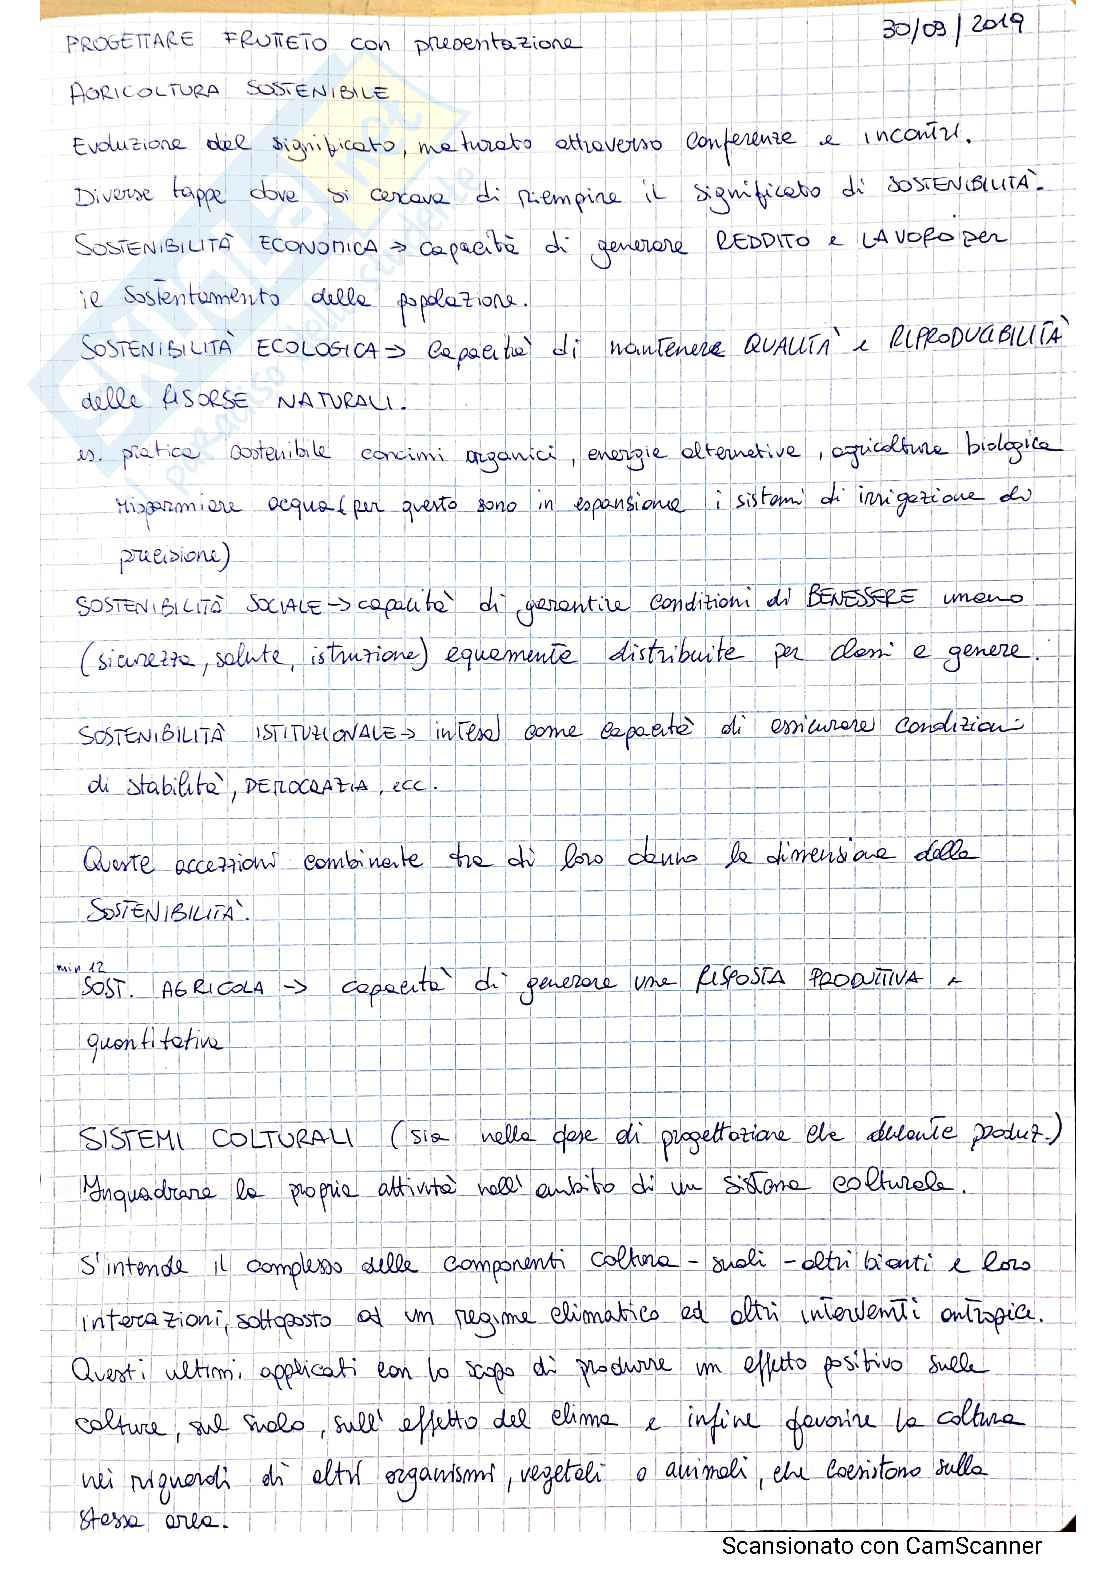 30/09/2019
PROGETTARE FRUTTETO con presentazione
AGRICOLTURA SOSTENIBILE
Evoluzione del significato, maturato attraverso conferenze e incontri.
Diverse tappe dove si cercava di riempire il significato di SOSTENIBILITÀ.
SOSTENIBILITÀ ECONOMICA → capacità di generare REDDITO e LAVORO per
il sostentamento della popolazione.
SOSTENIBILITÀ ECOLOGICA → capacità di mantenere QUALITÀ e RIPRODUCIBILITÀ
delle RISORSE NATURALI.
es. pratica sostenibile concimi organici, energie alternative, agricoltura biologica
risparmiare acqua (per questo sono in espansione i sistemi di irrigazione di
precisione)
SOSTENIBILITÀ SOCIALE → capacità di garantire condizioni di BENESSERE umano
(sicurezza, salute, istruzione) equamente distribuite per classi e genere.
SOSTENIBILITÀ ISTITUZIONALE → intesa come capacità di assicurare condizioni
di stabilità, DEMOCRAZIA, ecc.
Queste accezzioni combinate tra di loro danno la dimensione della
SOSTENIBILITÀ.
min 12
SOST. AGRICOLA → capacità di generare una RISPOSTA PRODUTTIVA e
quantitativa
SISTEMI COLTURALI (sia nella fase di progettazione che durante produz.)
Inquadrare la propria attività nell' ambito di un sistema colturale.
S'intende il complesso delle componenti coltura - suoli - altri bionti e loro
interazioni, sottoposto ad un regime climatico ed altri interventi antropici.
Questi ultimi, applicati con lo scopo di produrre un effetto positivo sulle
colture, sul suolo, sull' effetto del clima e infine favorire la coltura
nei riguardi di altri organismi, vegetali o animali, che coesistono sulla
stessa area.
Scansionato con CamScanner